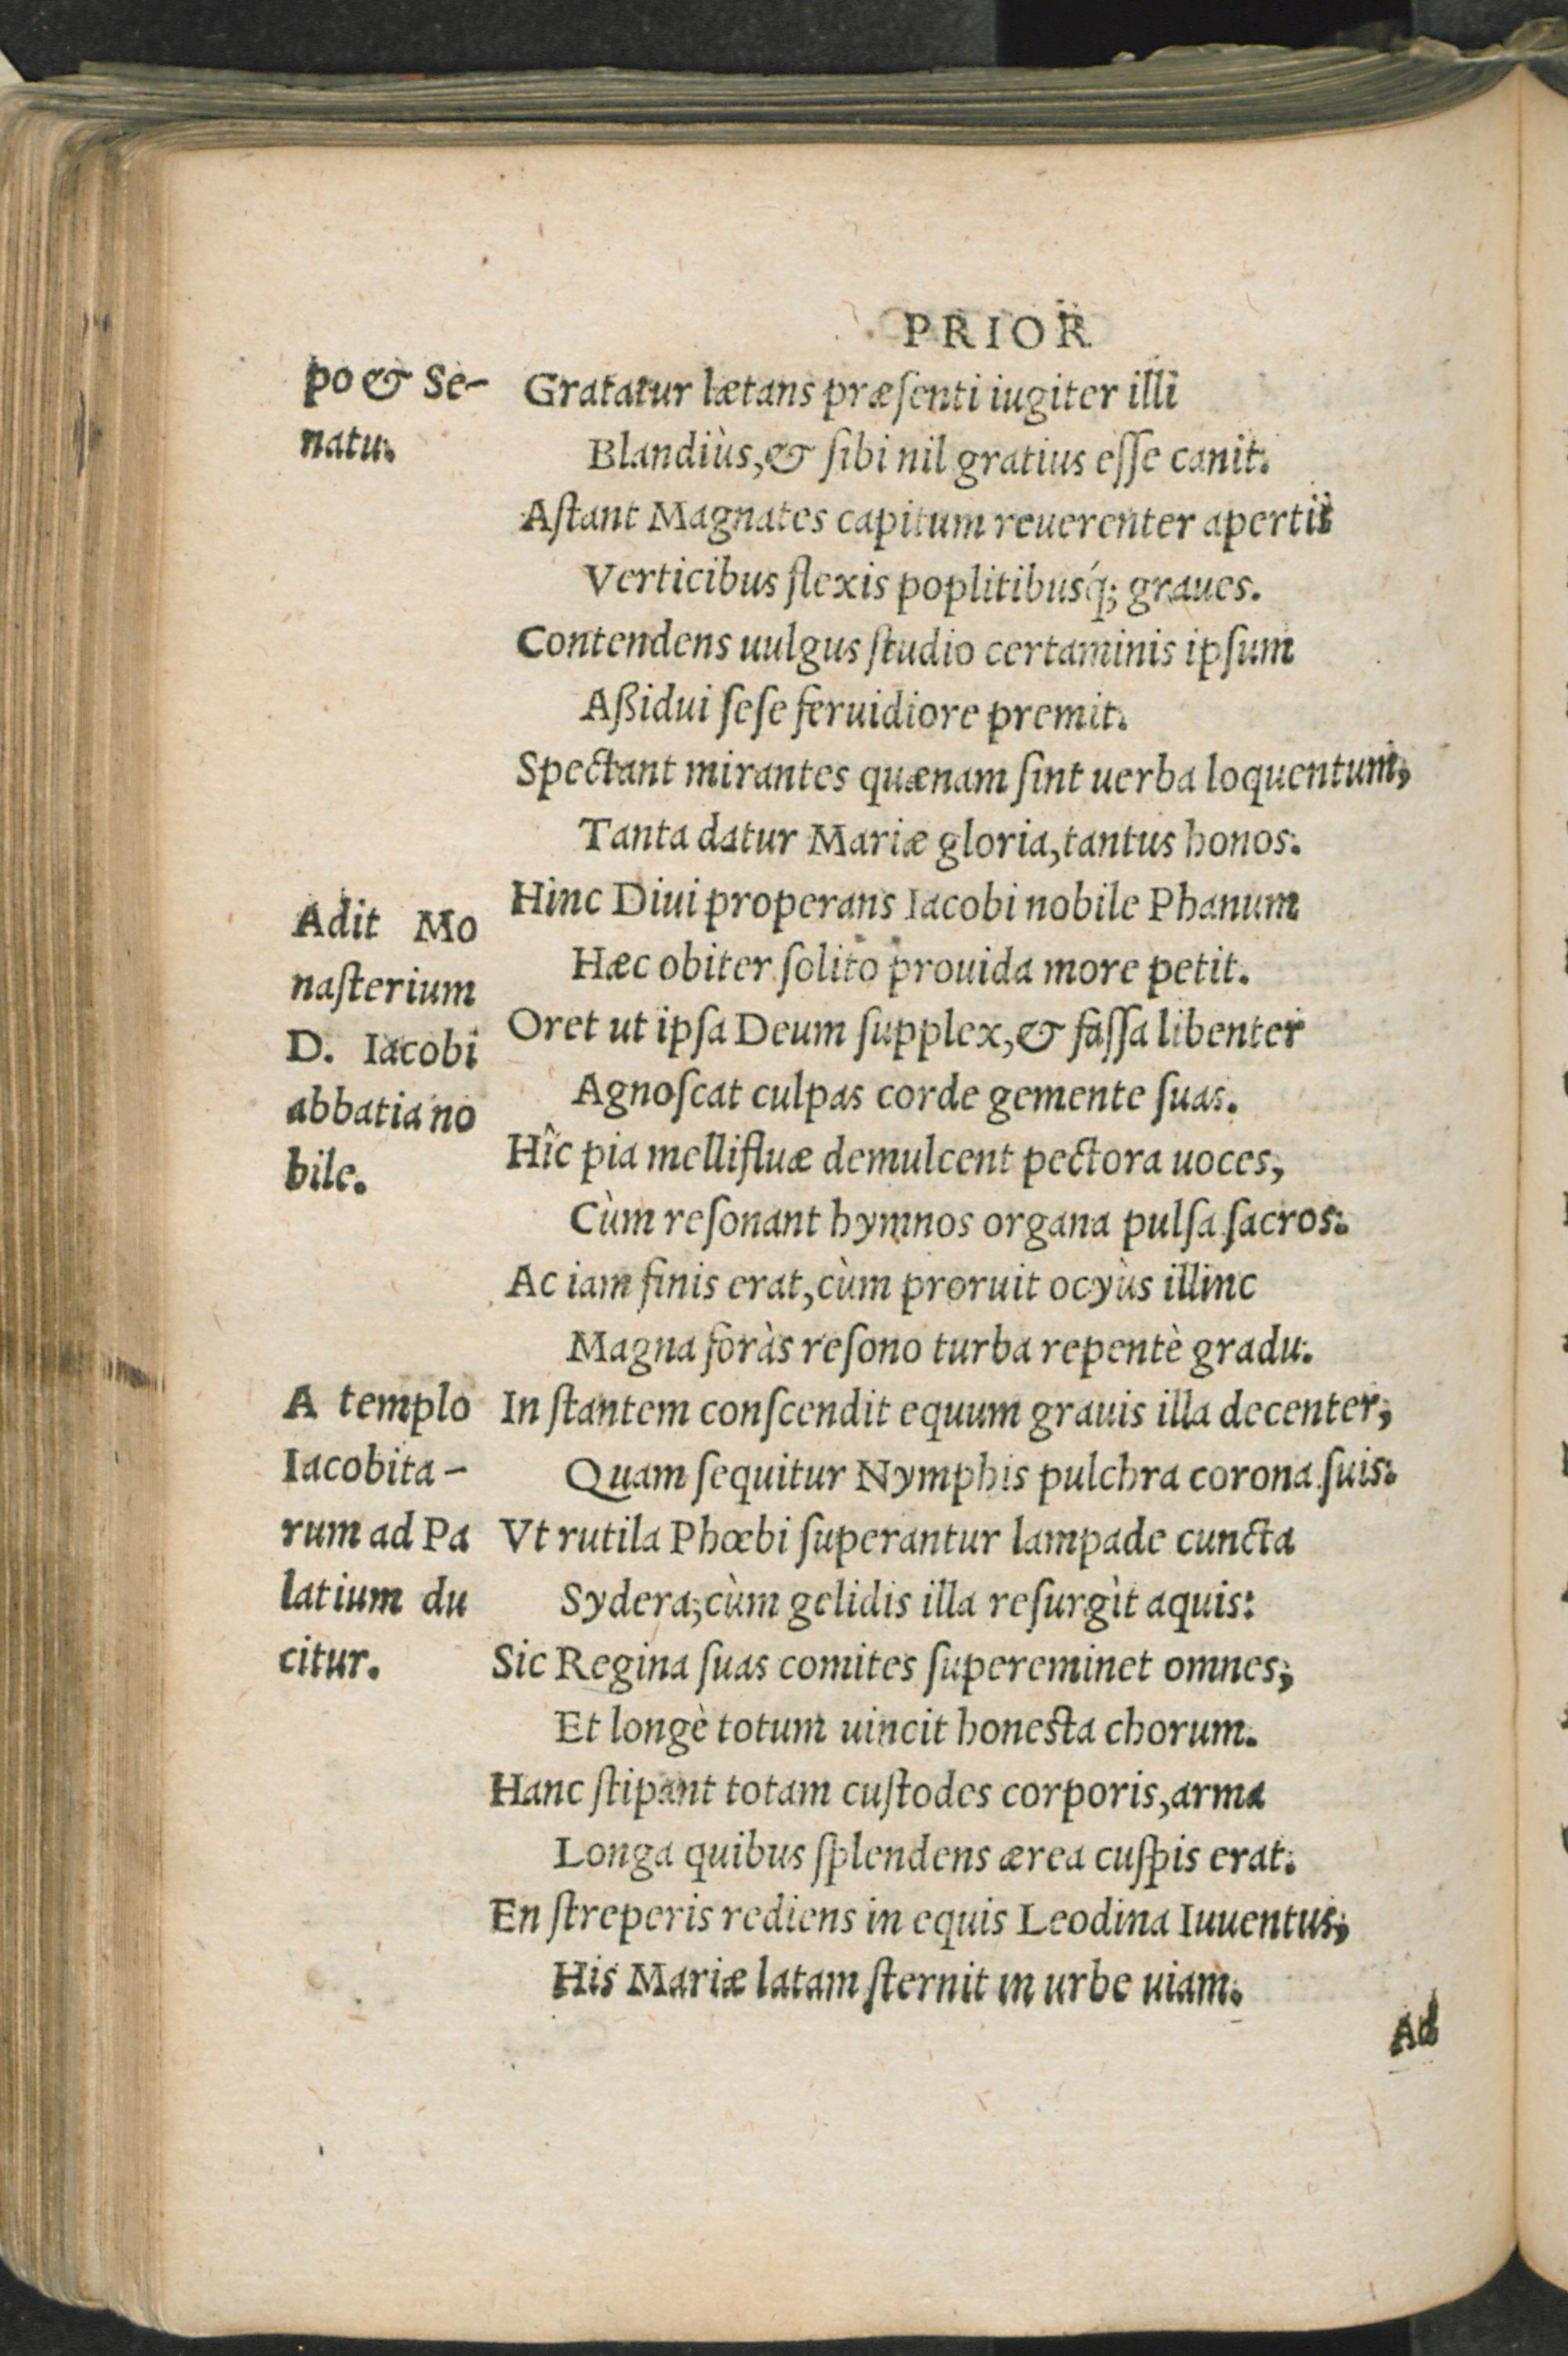 PRIOR
po & Se-
natu.
Gratatur lætans præſenti iugiter illi
Blandiùs, & ſibi nil gratius eſſe canit.
Aſtant Magnates capitum reuerenter apertis
Verticibus flexis poplitibusq́; graues.
Contendens uulgus ſtudio certaminis ipſum
Aßidui ſeſe feruidiore premit.
Spectant mirantes quænam ſint uerba loquentum,
Tanta datur Mariæ gloria, tantus honos.
Adit Mo
naſterium
D. Iacobi
abbatia no
bile.
Hinc Diui properans Iacobi nobile Phanum
Hæc obiter ſolito prouida more petit.
Oret ut ipſa Deum ſupplex, & faſſa libenter
Agnoſcat culpas corde gemente ſuas.
Hîc pia mellifluæ demulcent pectora uoces,
Cùm reſonant hymnos organa pulſa ſacros.
Ac iam finis erat, cùm proruit ocyùs illinc
Magna foràs reſono turba repentè gradu.
A templo
Iacobita-
rum ad Pa
latium du
citur.
In ſtantem conſcendit equum grauis illa decenter,
Quam ſequitur Nymphis pulchra corona ſuis.
Vt rutila Phœbi ſuperantur lampade cuncta
Sydera, cùm gelidis illa reſurgìt aquis:
Sic Regina ſuas comites ſupereminet omnes,
Et longè totum uincit honeſta chorum.
Hanc ſtipant totam cuſtodes corporis, arma
Longa quibus ſplendens ærea cuſpis erat.
En ſtreperis rediens in equis Leodina Iuuentus,
His Mariæ latam ſternit in urbe uiam.
Ad